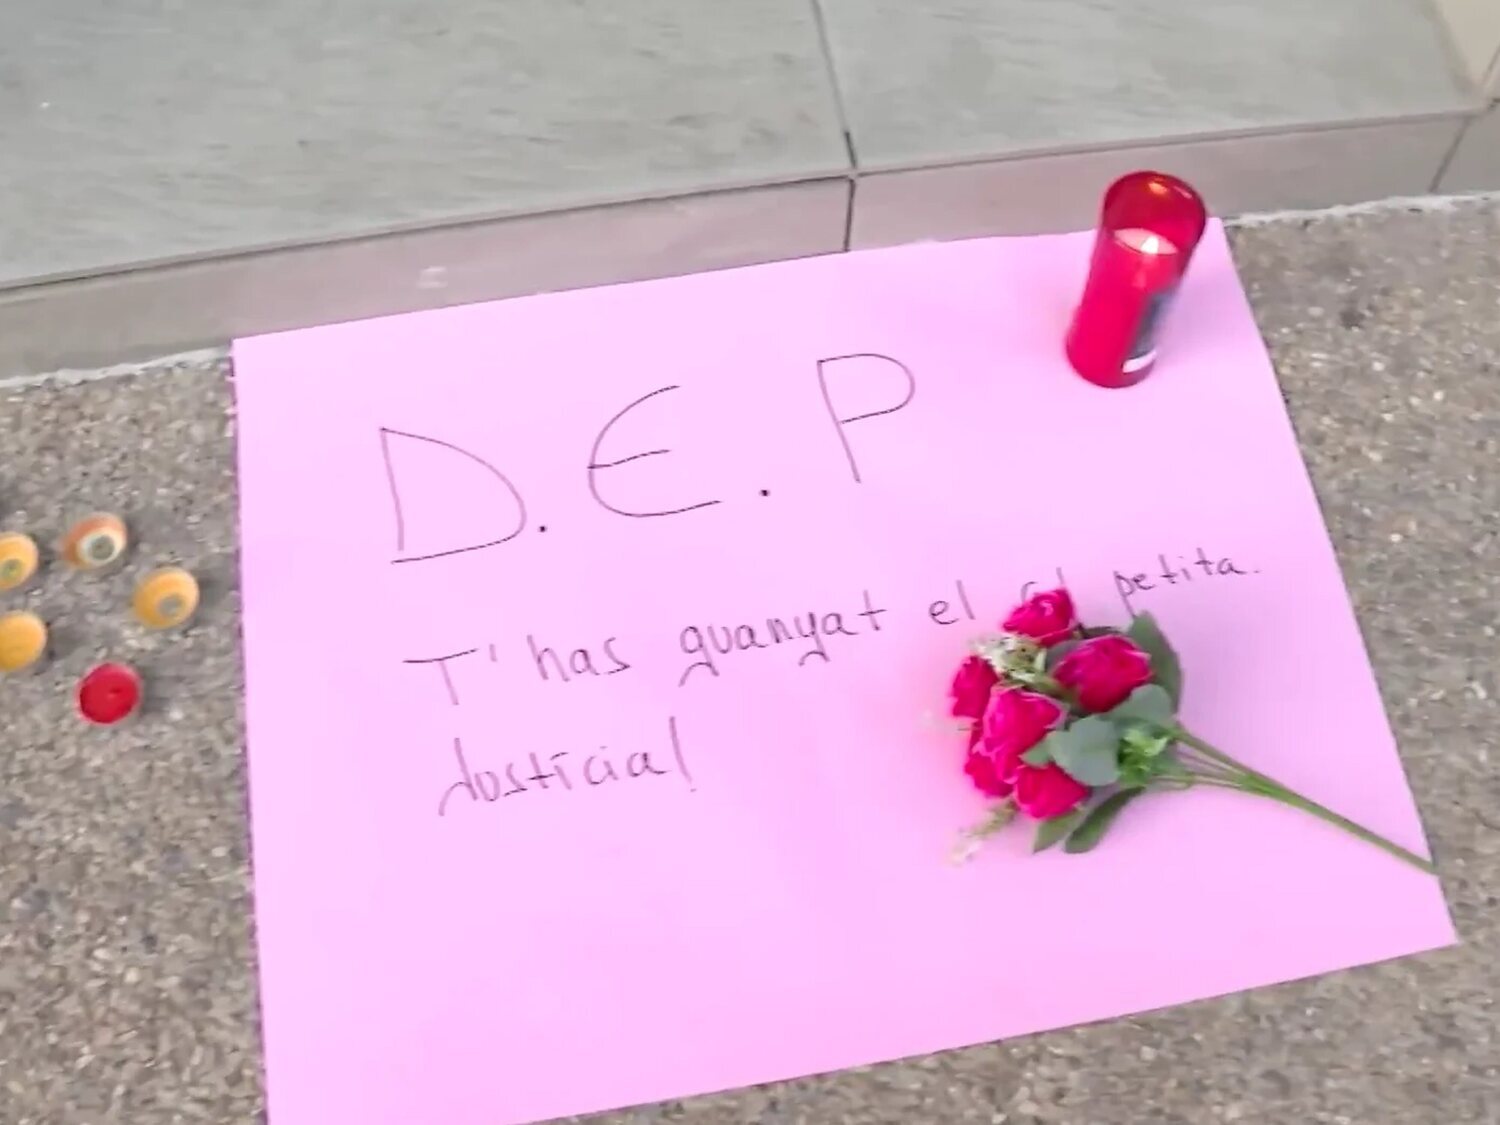 D.E.P
T'has guanyat el petita.
Justícia!